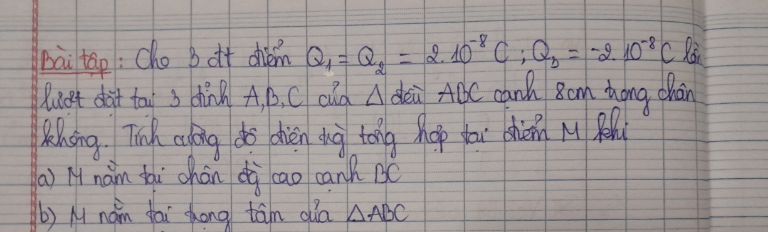 Bài tập: Cho 3 đt điểm Q₁ = Q₂ = 2.10⁻⁸ C ; Q₃ = -2.10⁻⁸ C lần
lượt đặt tại 3 đỉnh A, B, C của Δ đều ABC cạnh 8cm trong chân
không. Tính cường độ điện trg tổng hợp tại điểm M khi
a) M nằm tại chân đg cao cạnh BC
b) M nằm tại trong tâm của ΔABC